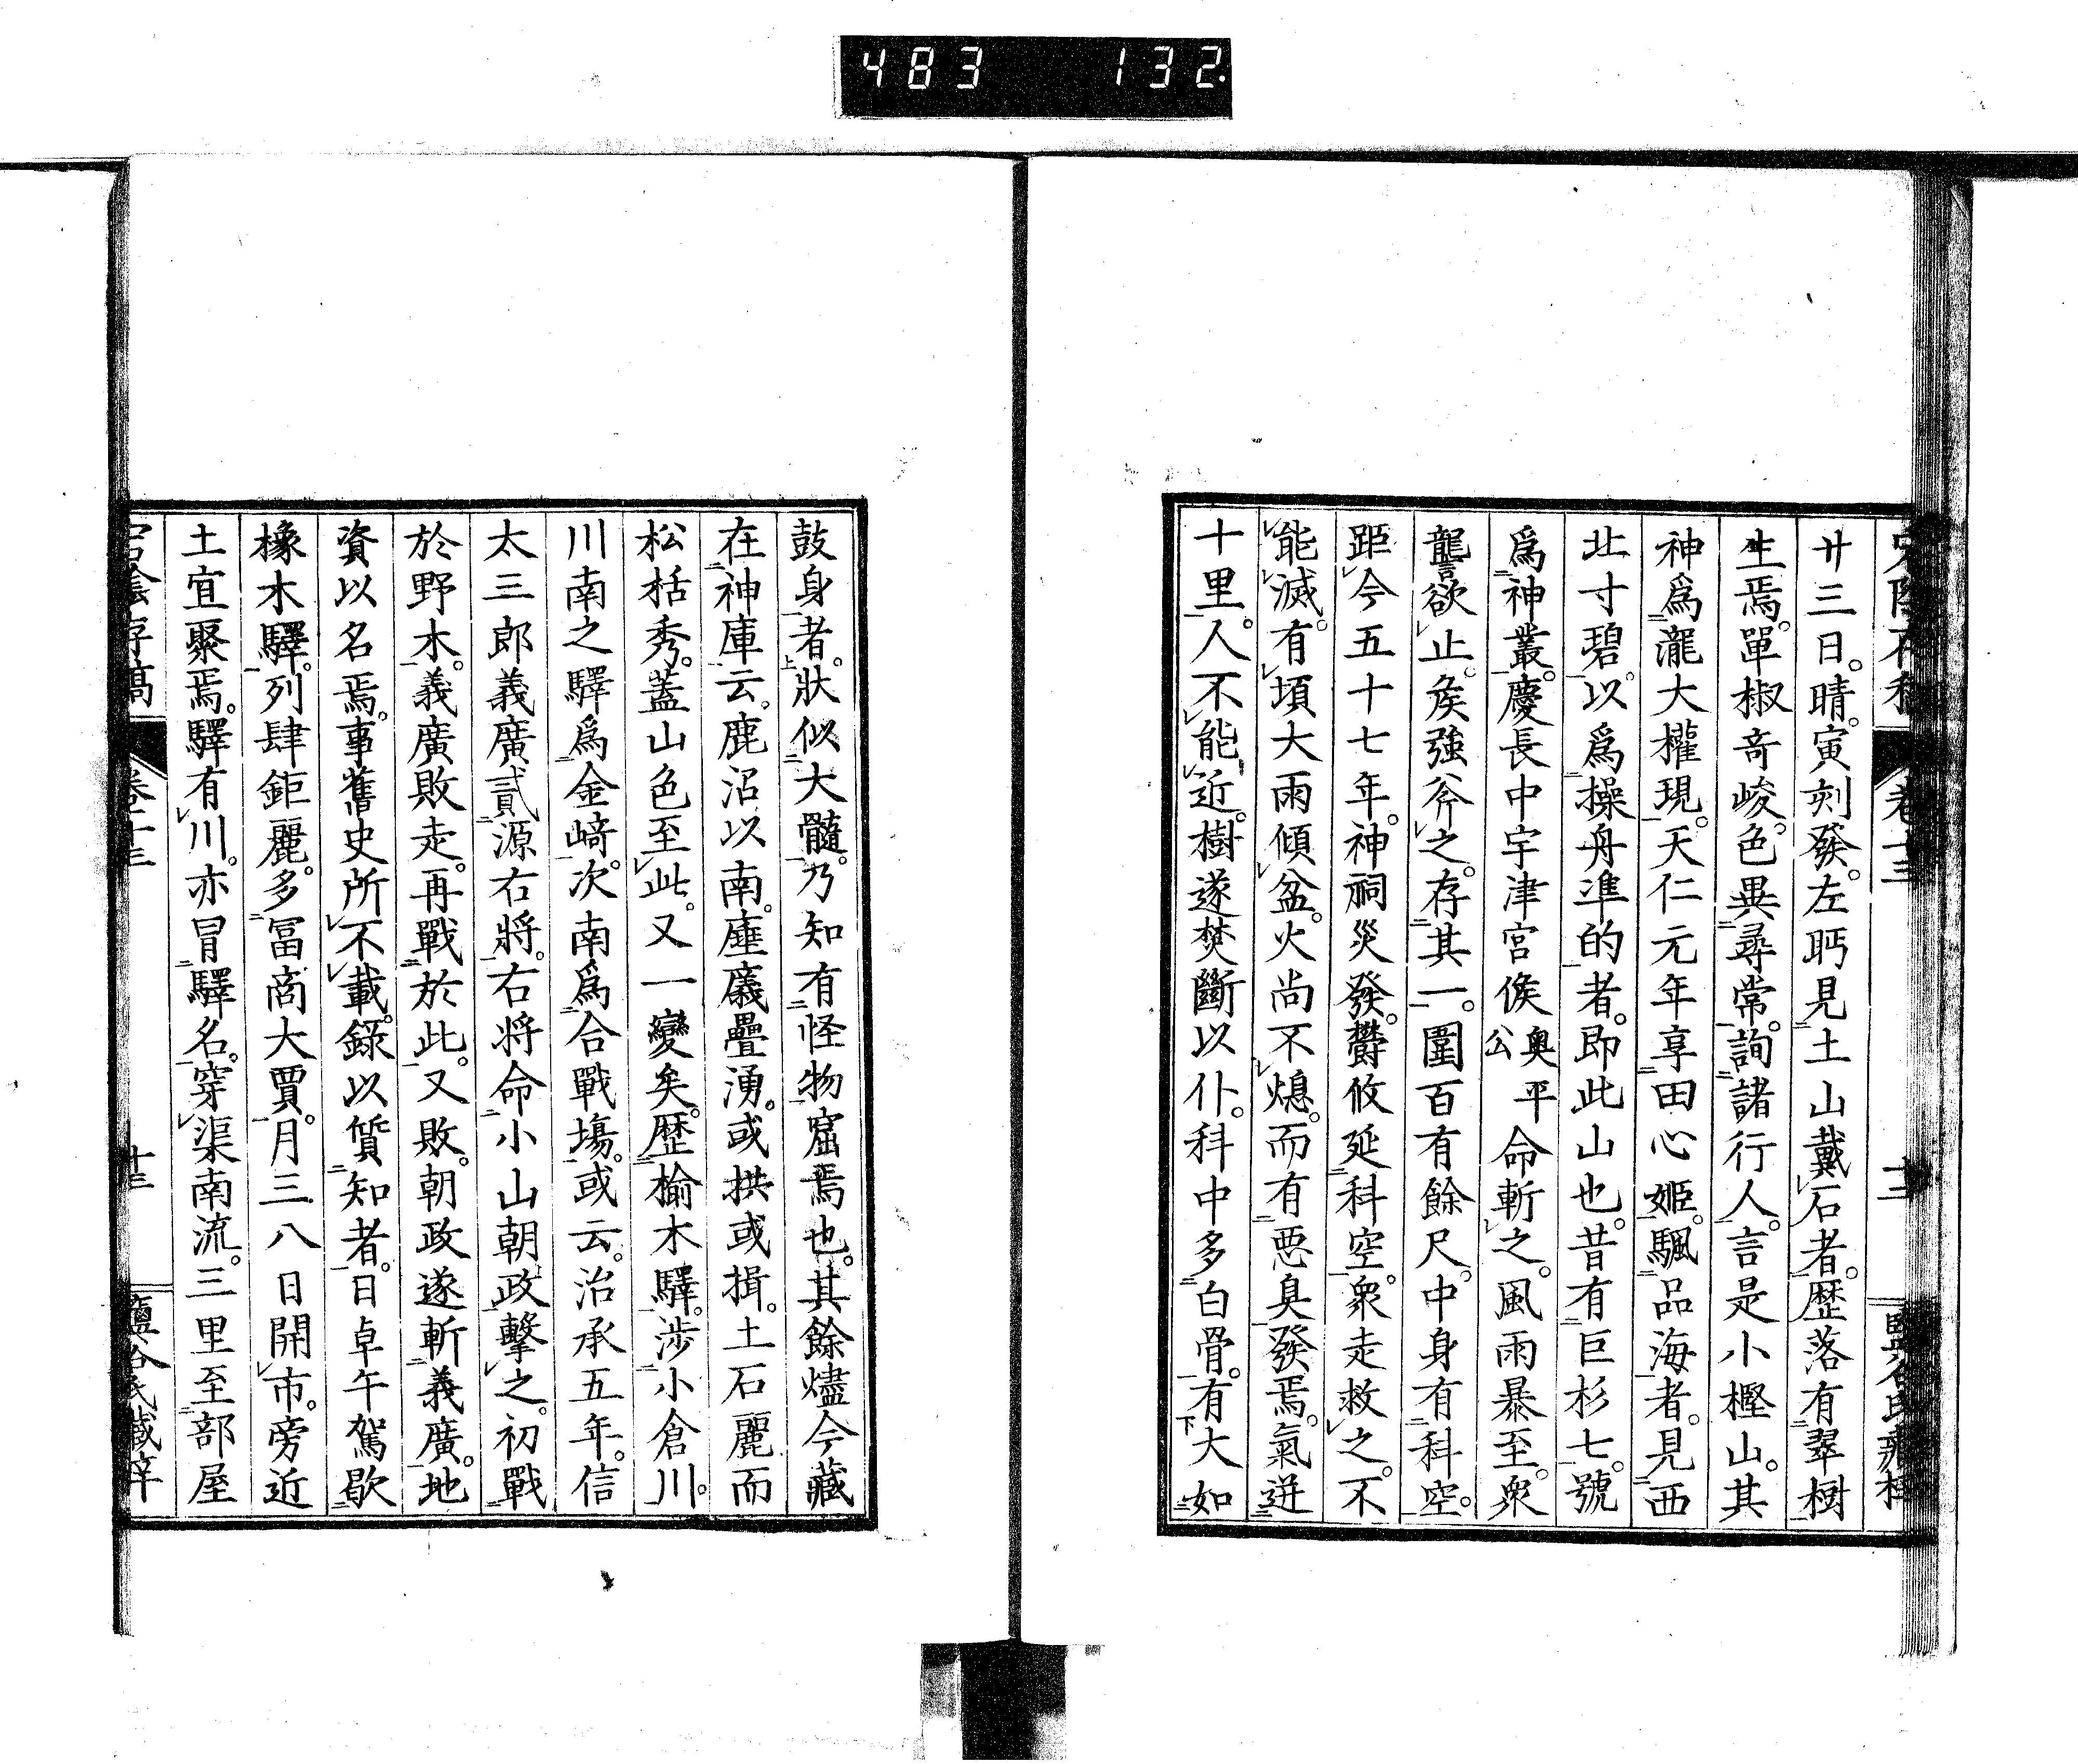 483 132
宕陰存稿 卷十三 十二 鹽谷氏藏梓
廿三日。晴。寅刻發。左眄見土山戴石者。歴落有翠樹
生焉。單椒奇峻。色異尋常。詢諸行人。言是小樫山。其
神爲瀧大權現。天仁元年享田心姬。颿品海者。見西
北寸碧。以爲操舟準的者。即此山也。昔有巨杉七。號
爲神叢。慶長中宇津宮侯奧平公命斬之。風雨暴至。衆
讋欲止。矦強斧之。存其一。圍百有餘尺。中身有科空。
距今五十七年。神祠災發。欝攸延科空。衆走救之。不
能滅。有頃大雨傾盆。火尚不熄。而有惡臭發焉。氣迸
十里。人不能近。樹遂焚斷以仆。科中多白骨。有大如
鼓身者。狀似大髓。乃知有怪物窟焉也。其餘燼今藏
在神庫云。鹿沼以南。㕓㕒疊湧。或拱或揖。土石麗而
松栝秀。蓋山色至此。又一變矣。歴楡木驛。涉小倉川。
川南之驛爲金﨑。次南爲合戰塲。或云。治承五年。信
太三郎義廣貳源右將。右将命小山朝政擊之。初戰
於野木。義廣敗走。再戰於此。又敗。朝政遂斬義廣。地
資以名焉。事舊史所不載。錄以質知者。日卓午駕歇
橡木驛。列肆鉅麗。多冨商大賈。月三八日開市。旁近
土宜聚焉。驛有川。亦冒驛名。穿渠南流。三里至部屋
宕陰存稿 卷十三 十三 鹽谷氏藏梓